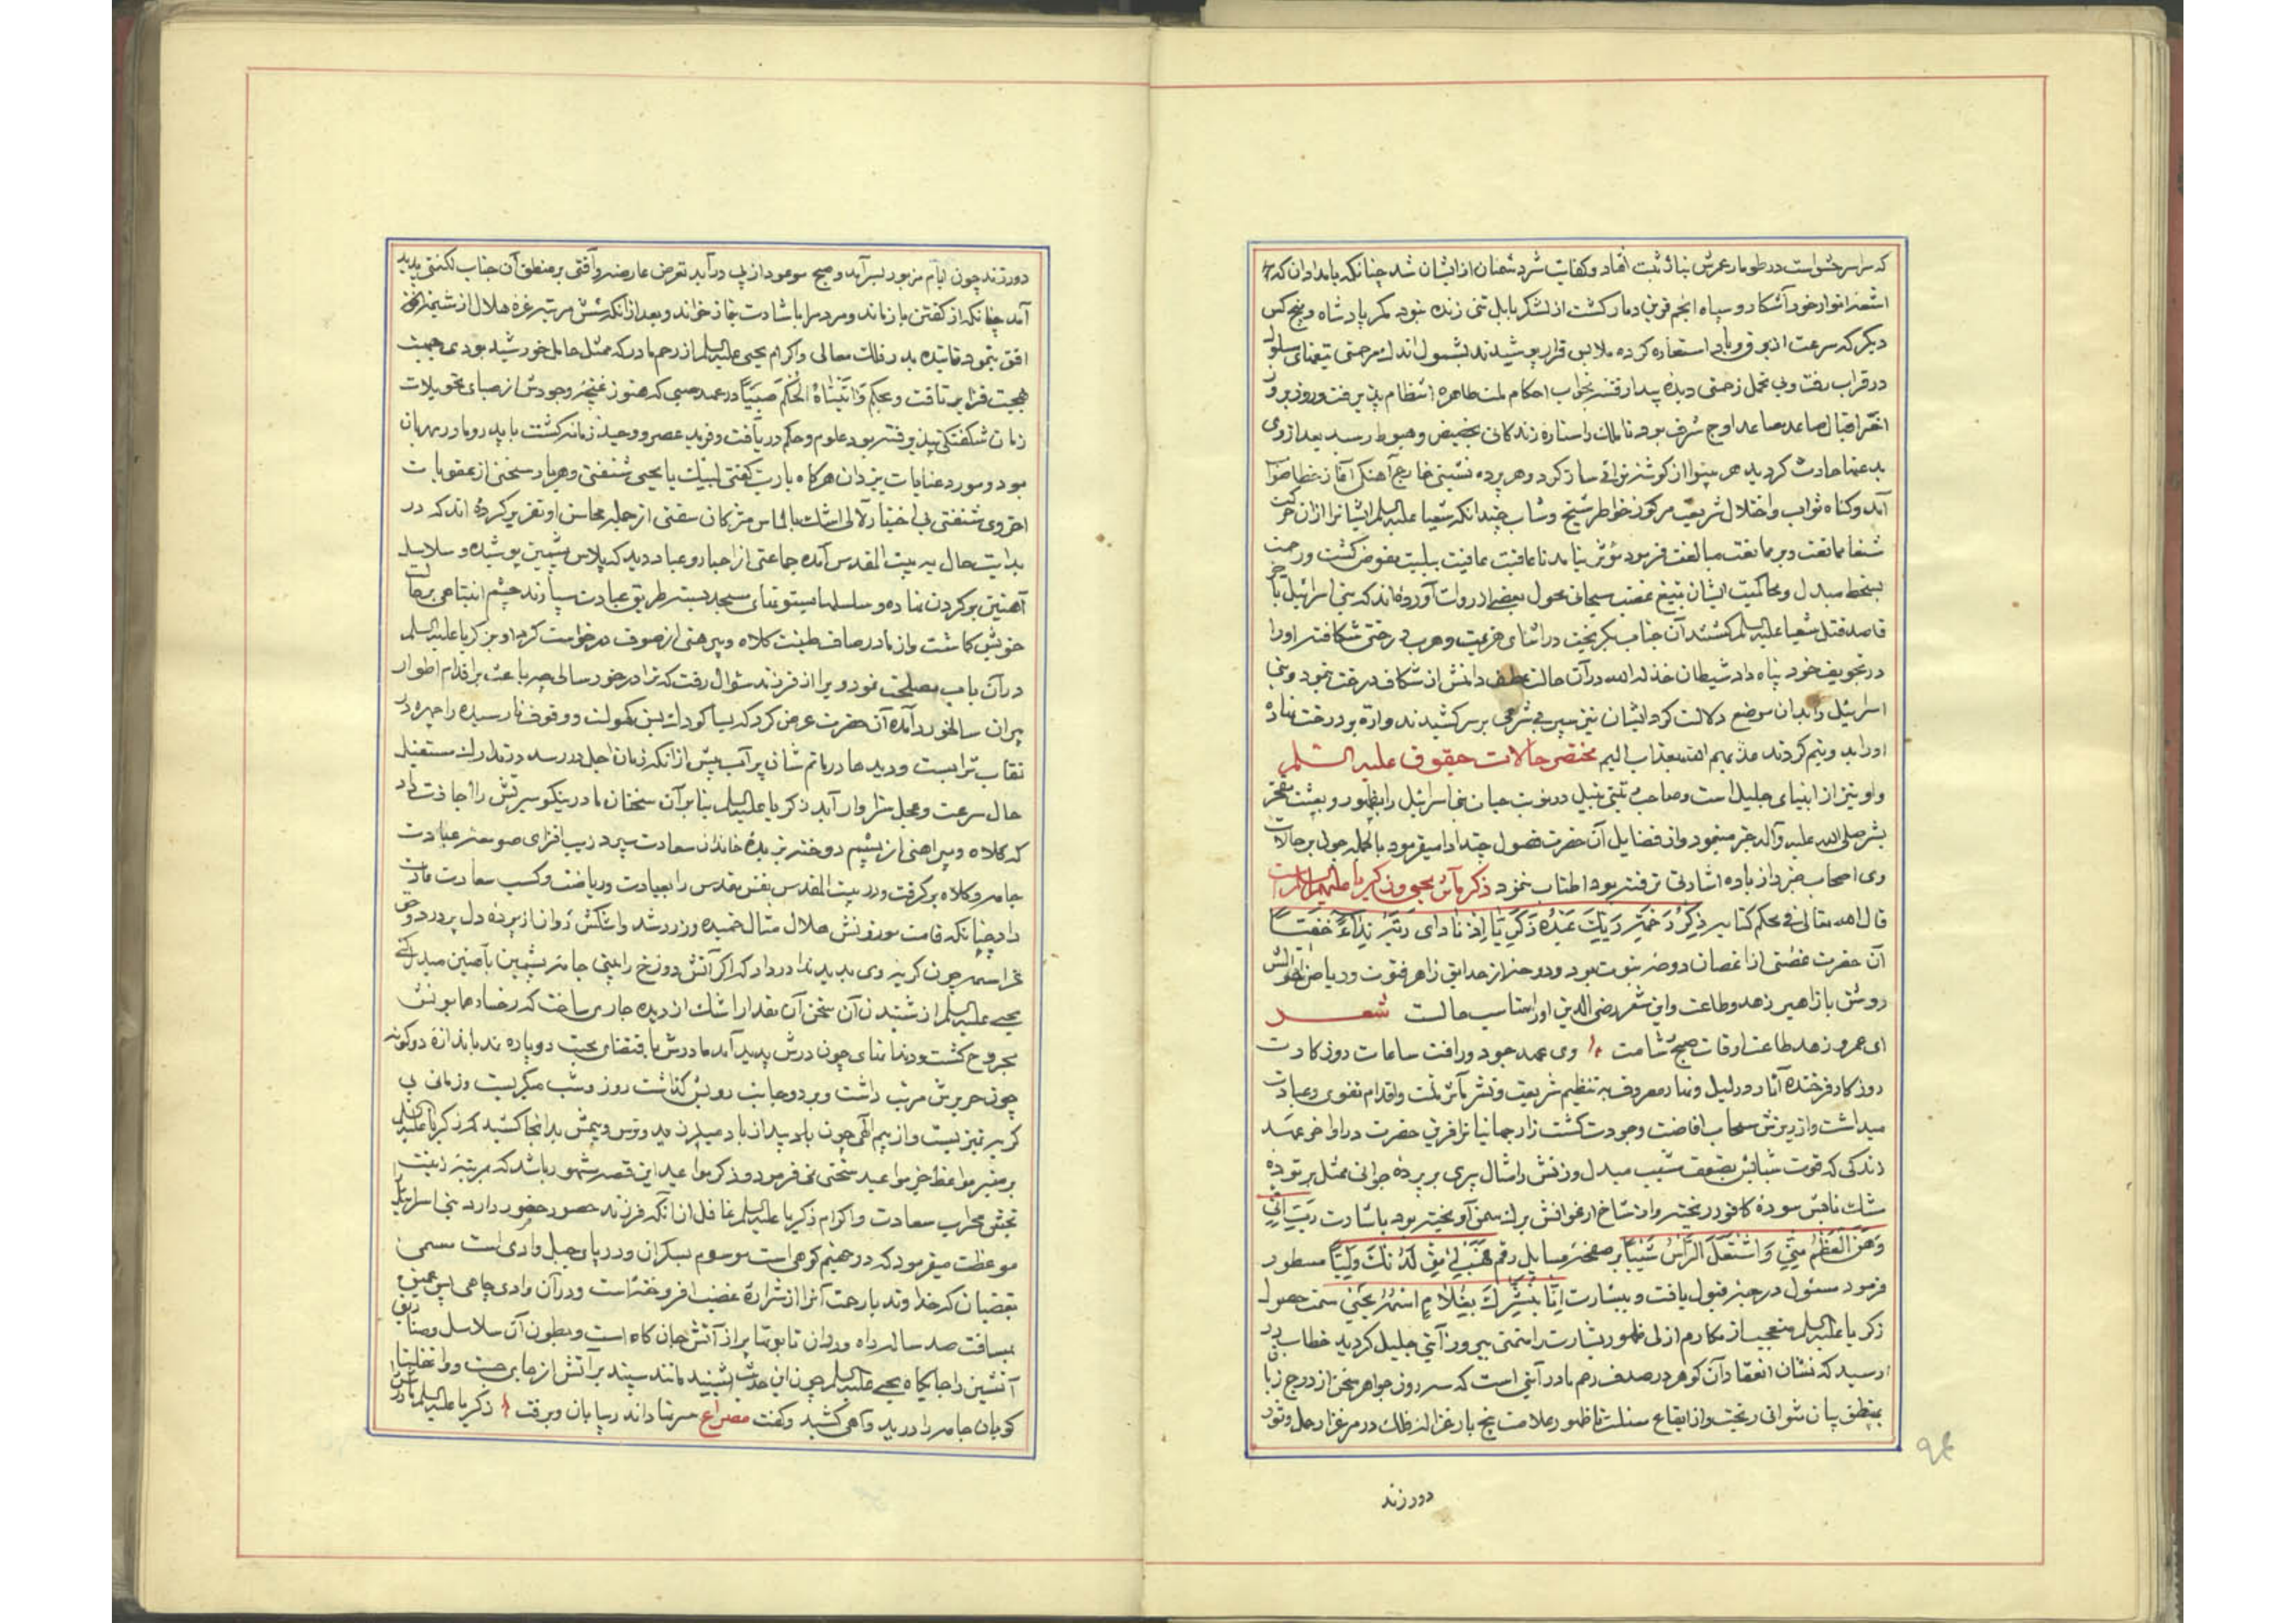 که سراسر حشو است در طومار عمرش بنیاد ثبت افتاد و کفایت شر دشمنان از ایشان شد چنانکه بامدادان که
اشعه انوار خود آشکار و سپاه انجم قرین دمار کشت از لشکر بابل تنی زنده نبود مکر پادشاه و پنج کس
دیکر که سرعت از برق و باد استعاره کرده ملابس فرار پوشیدند بشمول اندک مرحمتی تیغهای مسلول
در قراب رفت و بی تحمل زحمتی دیده بیدار فتنه بخواب احکام ملت طاهره انتظام پذیرفت و روز بروز
اختر اقبال صاعد مصاعد اوج شرف بود تا ملک را ستاره زندکانی بحضیض و هبوط رسید بعد از وی
بدعتها حادث کردید هر بینوا از کوشه نوائی ساز کرد و هر پرده نشینی خارج آهنکی آغاز خطا صواب
آمد و کناه ثواب و اختلال شریعت مرکوز خواطر شیخ و شاب چندانکه شعیا علیه السلم ایشانرا از آن حرکت
شنعا ممانعت و در ممانعت مبالغت فرمود مؤثر نیامد تا عاقبت عافیت ببلیت مفوض کشت و رحمت
بسخط مبدل و محاکمت ایشان بتیغ غضب سبحانی محول بعضی از روات آورده‌اند که بنی اسرائیل
قاصد قتل شعیا علیه السلم کشتند آن جناب بکریخت در اثنای هزیمت و هرب درختی شکافته او را
در تجویف خود پناه داد شیطان خذله الله در آن حالت طرف دامنش از شکاف درخت نمود و بنی
اسرئیل را بدان موضع دلالت کرد ایشان نیز سپر بی شرمی بر سر کشیدند و اره بر درخت نهاده
او را بدو نیم کردند عذبهم الله بعذاب الیم مختصر حالات حیقوق علیه السلم
و او نیز از انبیای جلیل است و صاحب در نوبت حیات بنی اسرائیل را بظهور و بعثت مفخر
بشر صلی الله علیه و آله خبر مینمود و از فضایل آن حضرت فصول چند ادا میفرمود بالجمله چون بر حالات
وی اصحاب خبر زیاده اشارتی نرفته بود اطناب ننمود ذکر مآثر یحیی و زکریا علیهما السلم
قال الله تعالی فی محکم کتابه ذِکرُ رَحمَتِ رَبِّکَ عَبدَهُ زَکَرِیّا اِذ نادی رَبَّهُ نِداءً خَفِیّاً
آن حضرت غصنی از اغصان دوحه نبوت بود و دوحه از حدایق زاهر فتوت و ریاض احوالش
روشن بازاهیر زهد و طاعت و این شعر رضی الدین او را مناسب حالت شعر
ای عمر و زهد طاعت اوقات صبح شامت وی عهد جود و رافت ساعات روز کارت
روز کار فرخنده آثار در لیل و نهار مصروف به تنظیم شریعت و نشر مآثر ملت و اقدام تقوی و عبادت
میداشت و از ریزش سحاب افاضت وجودت کشت زار جهانیانرا قرین حضرت در اواخر عهد
زندکی که قوت شبابش بضعف شیب مبدل و زنفش را مثال پیری بر پرده جوانی ممثل بر توده
مشک نابش سوده کافور ریخته و از شاخ ارغوانش برک سمن آویخته بود باشارت رَبِّ اِنّی
وَهَنَ العَظمُ مِنّی وَ اشتَعَلَ الرَّأسُ شَیباً بر صفحه مسایل رقم فَهَب لی مِن لَدُنکَ وَلِیّاً مسطور
فرمود مسئول در حیز قبول یافت و ببشارت اِنّا نُبَشِّرُکَ بِغُلامٍ اسمُهُ یَحیی سمت حصول
زکریا علیه السلم متعجب از مکارم ازلی ظهور بشارت را متمنی بروز آیتی جلیل کردید خطاب در
رسید که نشان انعقاد آن کوهر در صدف رحم مادر آنی است که سه روز جواهر سخن از درج زبان
بمنطق بیان نتوانی ریخت و از ایقاع سنلت تا ظهور علامت پنج بار غزاله فلک در مرغزار حمل و ثور
دور زند
۹۴
دور زند چون ایام مزبور بسر آمد و صبح موعود از پی درآمد تعرض عارضه و آفتی بر منطق آن جناب لکنتی پدید
آمد چنانکه از کفتن باز ماند و مردم را باشارت بنماز خواند و بعد از آنکه شش مرتبه غره هلال از شیمه
افق بنمود تابنده بدر فلک معالی و اکرام یحیی علیه السلم از رحم مادر که ممثل حامل خورشید بودی جهت
بهجت فزای برتافت و بحکم وَ آتَیناهُ الحُکمَ صَبِیّاً در عهد صبی که هنوز غنچه وجودش از صبای تحویلات
زمان شکفتکی نپذیرفته بود علوم و حکم دریافت و فرید عصر و وحید زمانه کشت با پدر و مادر مهربان
بود و مورد عنایات یزدان هر کاه یا رب کفتی لبیک یا یحیی شنفتی و هر بار سخنی از عقوبات
اخروی شنفتی بی اختیار لآلی اشک بالماس مژکان سفتی از جمله محاسن او تقریر کرده اند که در
بدایت حال به بیت المقدس آمده جماعتی از احبار و عباد دید که پلاس پشمین پوشیده و سلاسل
آهنین بر کردن نهاده و سلسلها بستونهای مسجد بسته طریق عبادت سپارند چشم انتباهی بر حال
خویش کماشت و از مادر صاف طینت کلاه و پیرهنی از صوف درخواست کرد او بزکریا علیه السلم
در آن باب مصلحت نمود و برا از فرزند سئوال رفت که ترا در خورد سالی چه باعث بر اقدام اطوار
پیران سالخورد آمده آن حضرت عرض کرد که بسا کودک بسن کهولت و وقوف نارسیده را چهره در
نقاب ترابست و دیدها در ماتم شان پر آب پیش از آنکه زمان اجل در رسد در تدارک مستقبل
حال سرعت و عجل سزاوار آید زکریا علیه السلم بنا بر آن سخنان مادر نیکو سیرتش را اجازت داد
که کلاه و پیراهنی از پشم دوخته بزبده خاندان سعادت سپرد زیب افزای صومعه عبادت
جامه و کلاه برکرفت و در بیت المقدس نفس مقدس را بعبادت و ریاضت و کسب سعادت عادت
داد چنانکه قامت موزونش هلال مثال خمیده و زرد شد و اشکش روان از پرده دل پر درد و حق
عز اسمه چون کریه وی بدید ندا در داد که اکر آتش دوزخ را بینی جامه پشمین بآهنین مبدل کنی
یحیی علیه السلم از شنیدن آن سخن آن مقدار اشک از دیده جاری ساخت که رخساره همایونش
مجروح کشت و دندانهای چون درش پدید آمد مادرش باقتضای محبت دو پاره نمد باندازه دو کونه
چون حریرش مرتب داشت و بر دو جانب رویش کذاشت روز و شب میکریست و زمانی بی
کریه نیز نیست و از بیم الهی چون باد بید از باد میلرزید و ترس و بیمش بدانجا کشید که زکریا علیه السلم
بر منبر مواعظ خبر مواعید سختی نمی فرمود و ذکر مواعید این قصه مشهور باشد که مرتبه زینت
بخش محراب سعادت و اکرام زکریا علیه السلم غافل از آنکه فرزند حصور حضور دارد بنی اسرئیل را
موعظت میفرمود که در جهنم کوهی است موسوم بسکران و در پای جبل وادی است مسمی
بغضبان که خداوند بارحت آنرا از شراره غضب افروخته است و در آن وادی چاهی پس عمیق
بمسافت صد ساله راه و در آن تابوتها پر از آتش جان کاه است و بطون آن سلاسل و
آتشین را جایکاه یحیی علیه السلم چون این حدیث شنید مانند سپند بر آتش از جای جست و وا غفلتا
کویان جامه را درید و آهی کشید و کفت مصراع سر نهاد اندر بیابان و برفت زکریا علیه السلم